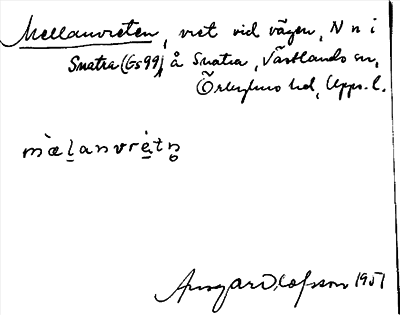 Mellanvreten, vret vid vägen, N n i
Snatra (Gs99), å Snatra, Västlands sn,
Örbyhus hd, Upps. l.
mæ̀lanvrètn̥
Ansgar Olofsson 1951